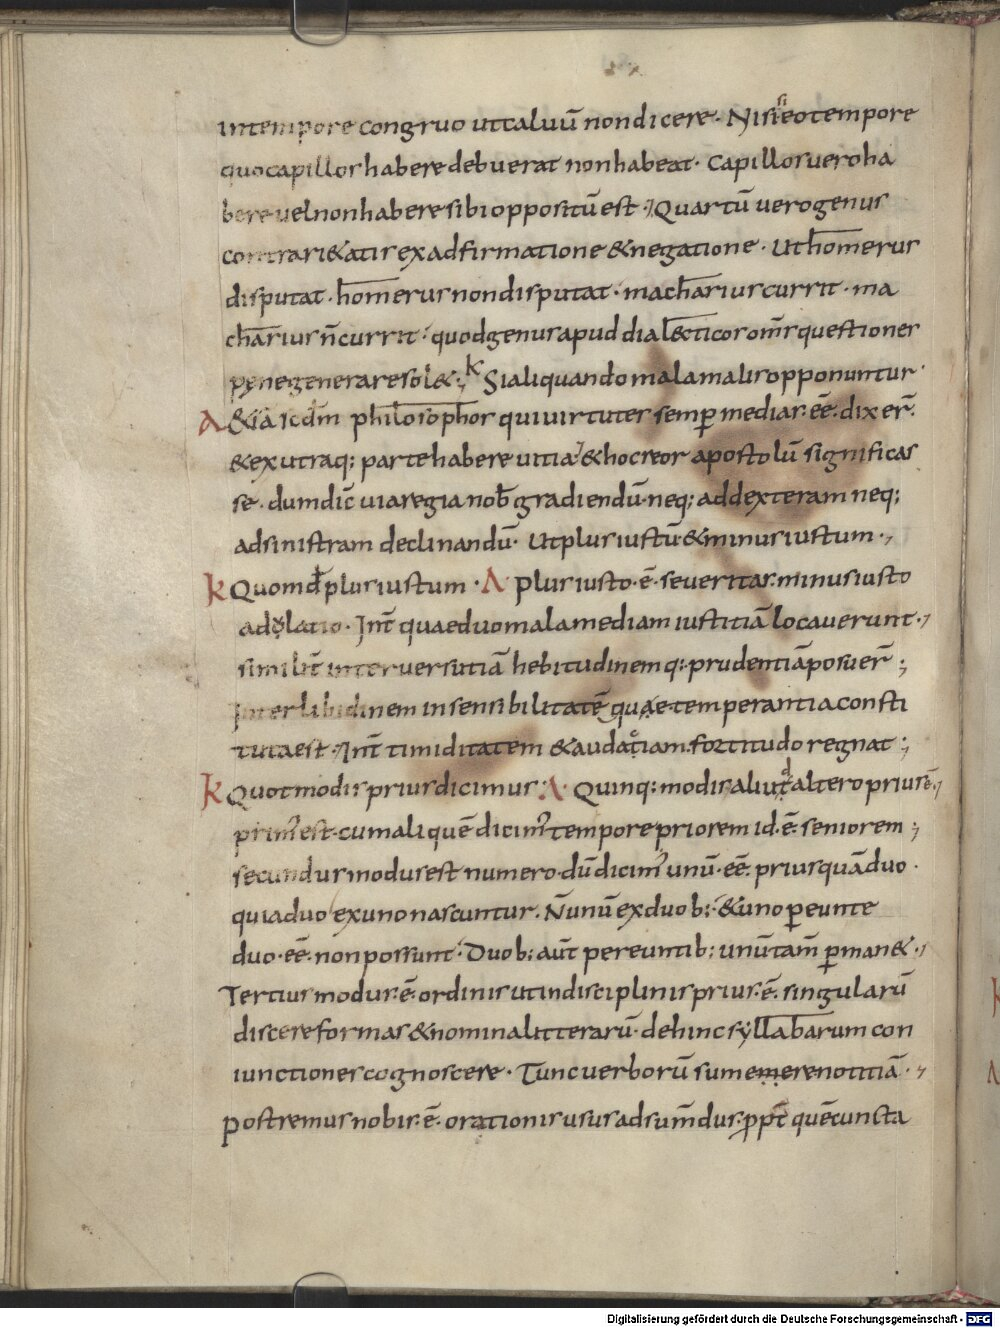 intempore congruo ut caluū non dicere. Nisi eo tempore
quo capillos habere debuerat non habeat. Capillos uero ha
bere uel non habere sibi oppositū est; Quartū uero genus
contrari&atis ex adfirmatione & negatione. Ut hom̄erus
disputat. hom̄erus non disputat. mach̄arius currit. ma
ch̄arius n̄ currit. quod genus apud dialecticos om̄s questiones
pene generare sol&; K Si aliquando mala malis opponuntur
A &iā scdm̄ philosophos qui uirtutes semp̄ medias. eē. dixer̄.
& ex utraq; parte habere uitia & hoc reor apostolū significas
se. dum dic̄ uia regia nob̄ gradiendū. neq; ad dexteram neq;
ad sinistram declinandū. Ut plus iustū & minus iustum.,
K Quomd̄ plus iustum. A plus iusto. ē. seueritas. minus iusto
adolatio. Int̄ quae duo mala mediam iustitiā locauerunt.,
similit̄ inter uersutiā hebitudinem q; prudentiā posuer̄;
Inter libidinem insensibilitatē quae temperantia consti
tuta est. Int̄ timiditatem & audatiam. fortitudo regnat;
K Quot modis prius dicimus. A Quinq; modis aliud altero prius ē.,
prim' est. cum aliquē dicim' tempore priorem id. ē. seniorem;
secundus modus est numero. dū dicim' unū. eē. prius quā duo.
quia duo ex uno nascuntur. N̄ unū ex duob; & uno p̄eunte
duo. eē. non possunt. Duob; aut̄ pereuntib; unū tam̄ p̄man&.,
Tertius modus. ē. ordinis ut in disciplinis prius. ē. singularū
discere formas & nomina litterarū. dehinc syllabarum con
iunctiones cognoscere. Tunc uerborū sumemere notitiā.,
postremus nobis. ē. orationis usus adsum̄dus. ppt̄ quē cuncta
Digitalisierung gefördert durch die Deutsche Forschungsgemeinschaft - DFG